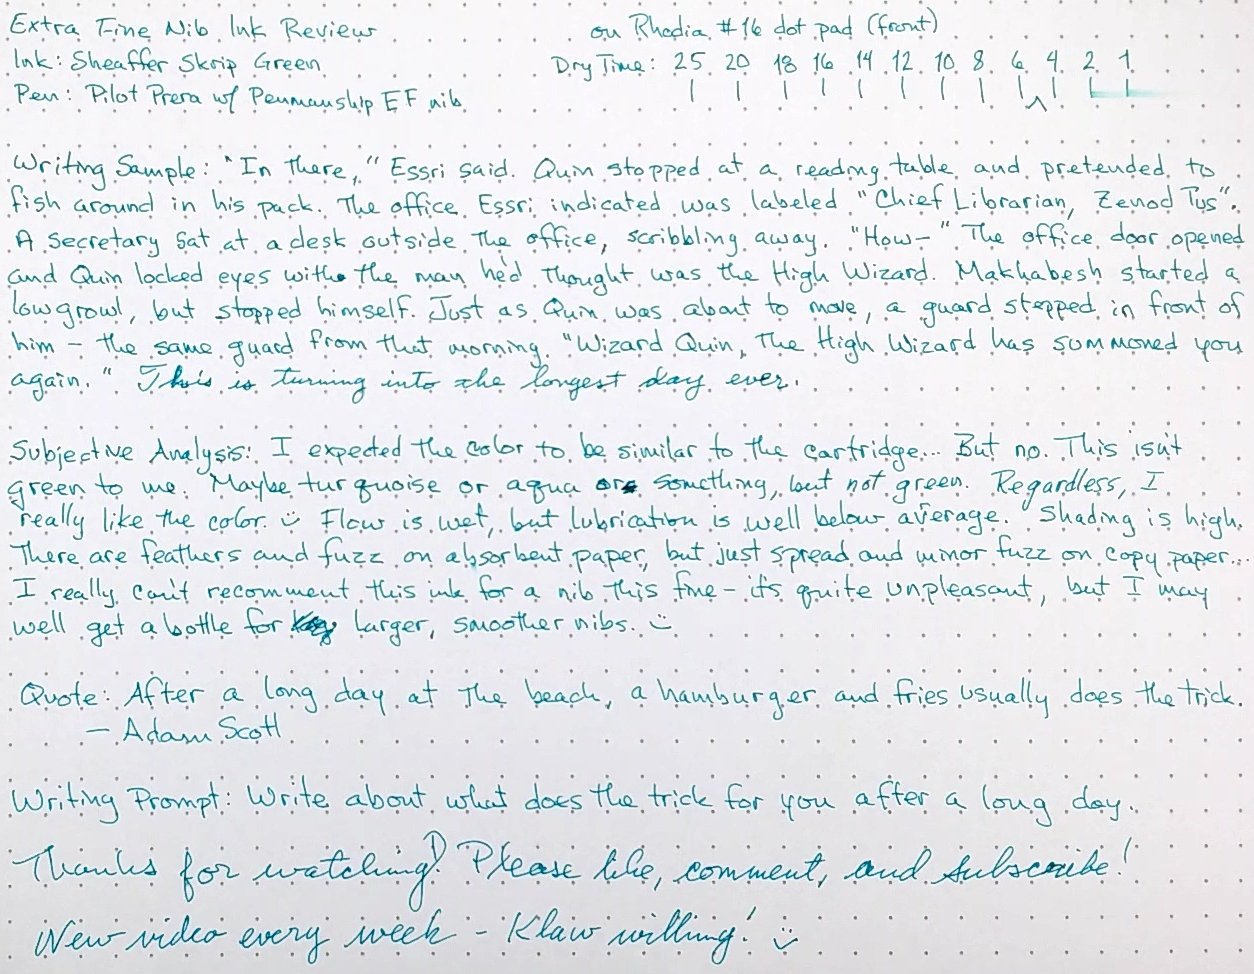 Extra Fine Nib Ink Review on Rhodia #16 dot pad (front)
Ink: Sheaffer Skrip Green Dry Time: 25 20 18 16 14 12 10 8 6 4 2 1
Pen: Pilot Prera w/ Penmanship EF nib
Writing Sample: "In there," Essri said. Quin stopped at a reading table and pretended to
fish around in his pack. The office Essri indicated was labeled "Chief Librarian, Zenod Tus".
A secretary sat at a desk outside the office, scribbling away. "How—" The office door opened
and Quin locked eyes with the man he'd thought was the High Wizard. Makhabesh started a
low growl, but stopped himself. Just as Quin was about to move, a guard stepped in front of
him – the same guard from that morning. "Wizard Quin, The High Wizard has summoned you
again." This is turning into the longest day ever.
Subjective Analysis: I expected the color to be similar to the cartridge... But no. This isn't
green to me. Maybe turquoise or aqua or something, but not green. Regardless, I
really like the color. :) Flow is wet, but lubrication is well below average. Shading is high.
There are feathers and fuzz on absorbent paper, but just spread and minor fuzz on copy paper...
I really can't recomment this ink for a nib this fine – it's quite unpleasant, but I may
well get a bottle for larger, smoother nibs. :)
Quote: After a long day at the beach, a hamburger and fries usually does the trick.
— Adam Scott
Writing Prompt: Write about what does the trick for you after a long day.
Thanks for watching! Please like, comment, and subscribe!
New video every week – Klaw willing! :)